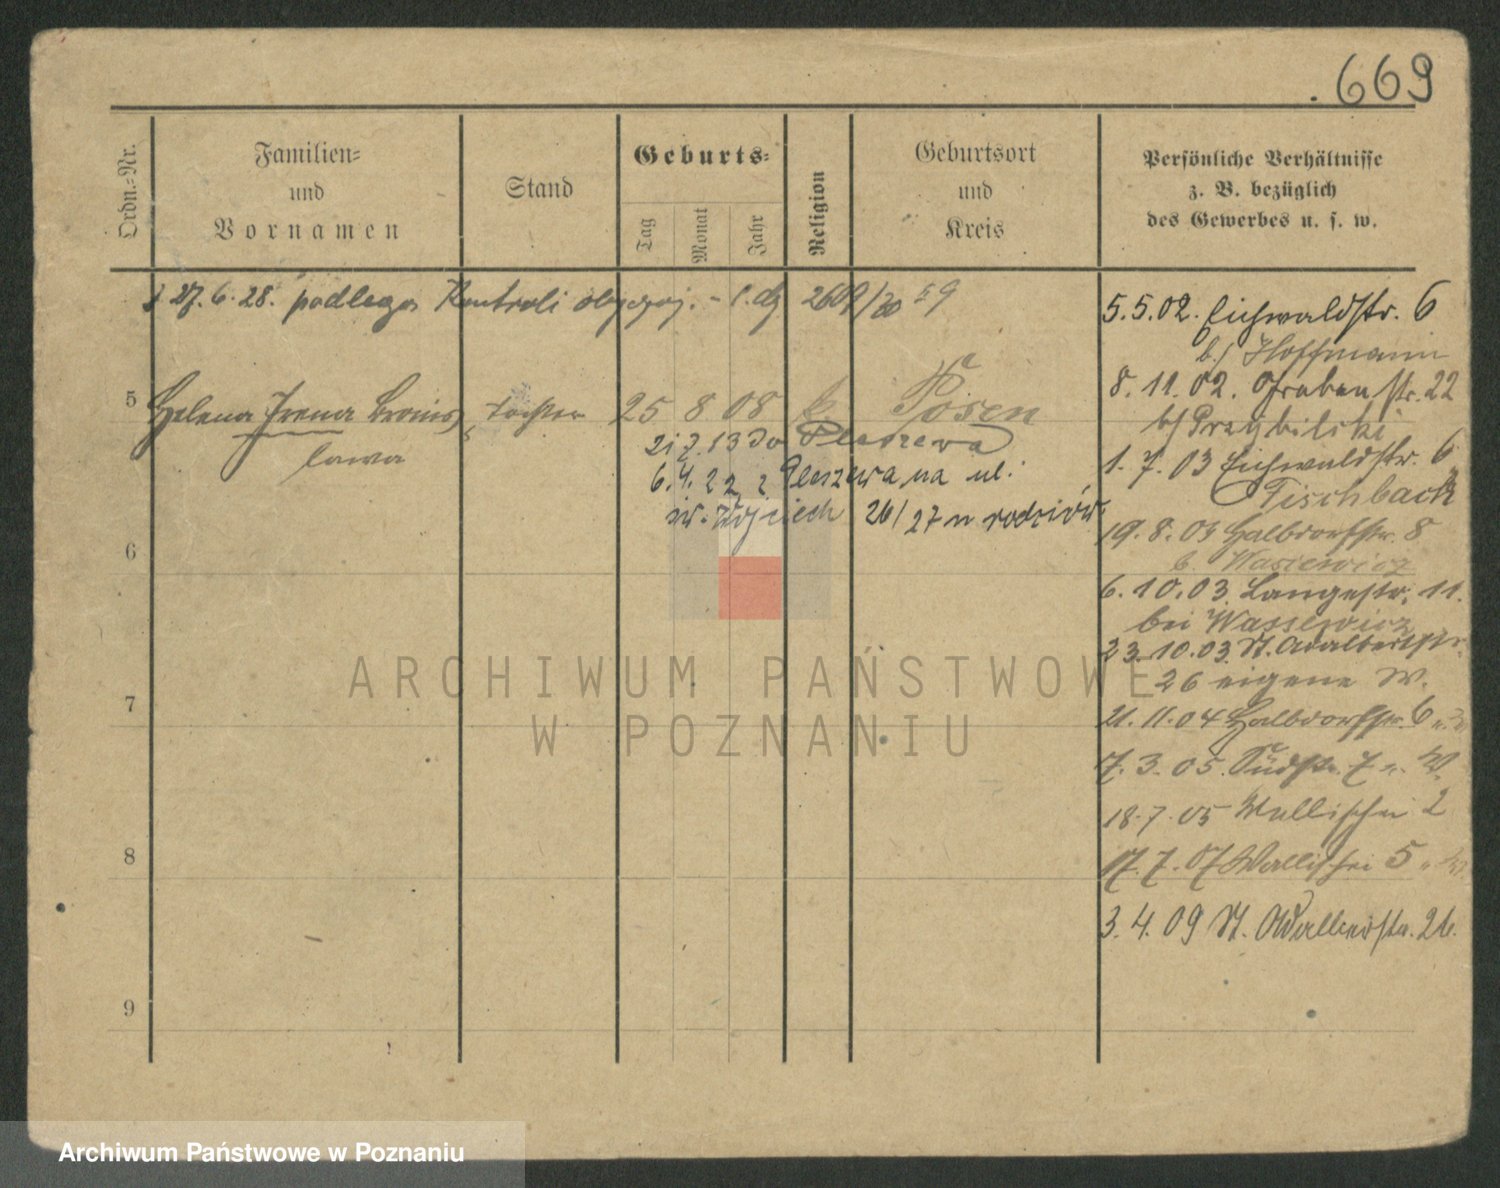 .669
Ordn.-Nr.
Familien-
und
Vornamen
Stand
Geburts-
Tag
Monat
Jahr
Religion
Geburtsort
und
Kreis
Persönliche Verhältnisse
z. B. bezüglich
des Gewerbes u. s. w.
27.6.28. podlega Kontroli 2609/30
5 Helena Irena Bronis
lawa
Tochter 25 8 08 k. Posen
21 7.13 do Pleszewa
6.4.22 z Pleszewa na ul.
św. Wojciech 26/27 u rodziców
6
7
8
9
5.5.02. Eichwaldstr. 6
b/ Hoffmann
8.11.02. Grabenstr. 22
b/ Przybilski
1.7.03 Eichwaldstr. 6
Fischback
19.8.03 Halbdorfstr. 8
b. Wasiewicz
6.10.03 Langestr. 11.
bei Wassewicz
23.10.03. St. Adalbertstr.
26 eigene W.
21.11.04 Halbdorfstr. 6
7.3.05. Südstr. 7 W.
18.7.05 Wallischei 2
17.7.07 Wallischei 5
3.4.09 St. Adalbertstr. 26.
ARCHIWUM PAŃSTWOWE
W POZNANIU
Archiwum Państwowe w Poznaniu